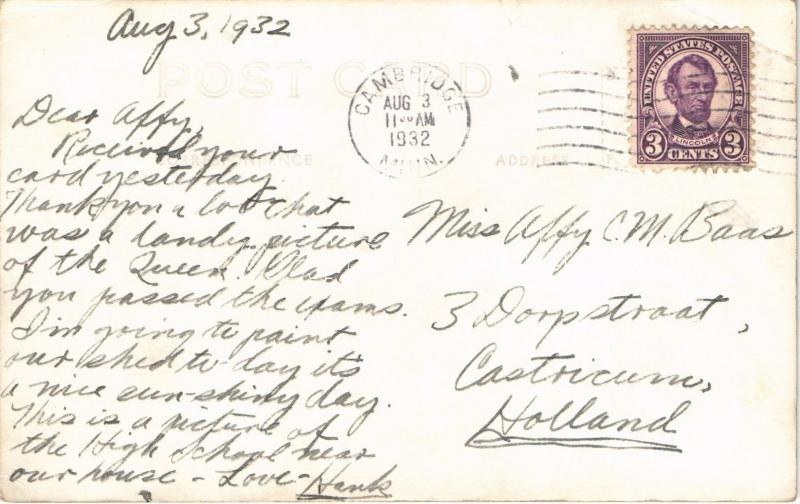 Aug 3, 1932
POST CARD
CAMBRIDGE
AUG 3
11 30 AM
1932
MINN.
UNITED STATES POSTAGE
LINCOLN
3 CENTS 3
CORRESPONDENCE
ADDRESS
Dear Affy,
Received your
card yesterday.
Thank you a lot that
was a dandy picture
of the Queen. Glad
you passed the exams.
I'm going to paint
our shed to-day it's
a nice sun-shiny day.
This is a picture of
the High School near
our house - Love - Hank
Miss Affy C. M. Baas
3 Dorpstraat,
Castricum,
Holland